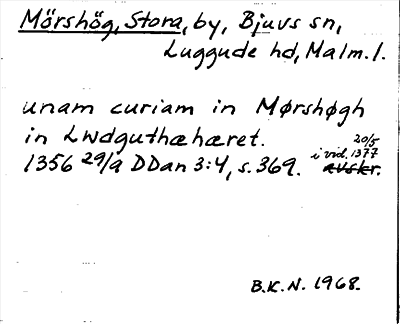 Mörshög, Stora, by, Bjuvs sn,
Luggude hd, Malm. l.
unam curiam in Mørshøgh
in Lwdguthæhæret.
1356 29/9 DDan 3:4, s. 369. i vid. 20/5 1377 avskr.
B.K.N. 1968.